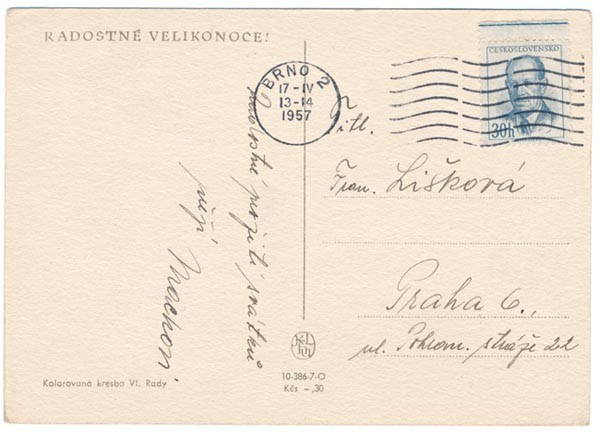 RADOSTNÉ VELIKONOCE!
BRNO 2
17-IV
13-14
1957
ČESKOSLOVENSKO
30h
prožití svátků
přejí
Machovi
Titl.
Fran. Lišková
Praha 6.,
ul. Pohran. stráže 22
Kolorovaná kresba Vl. Rady
10-386-7-O
Kčs -,30